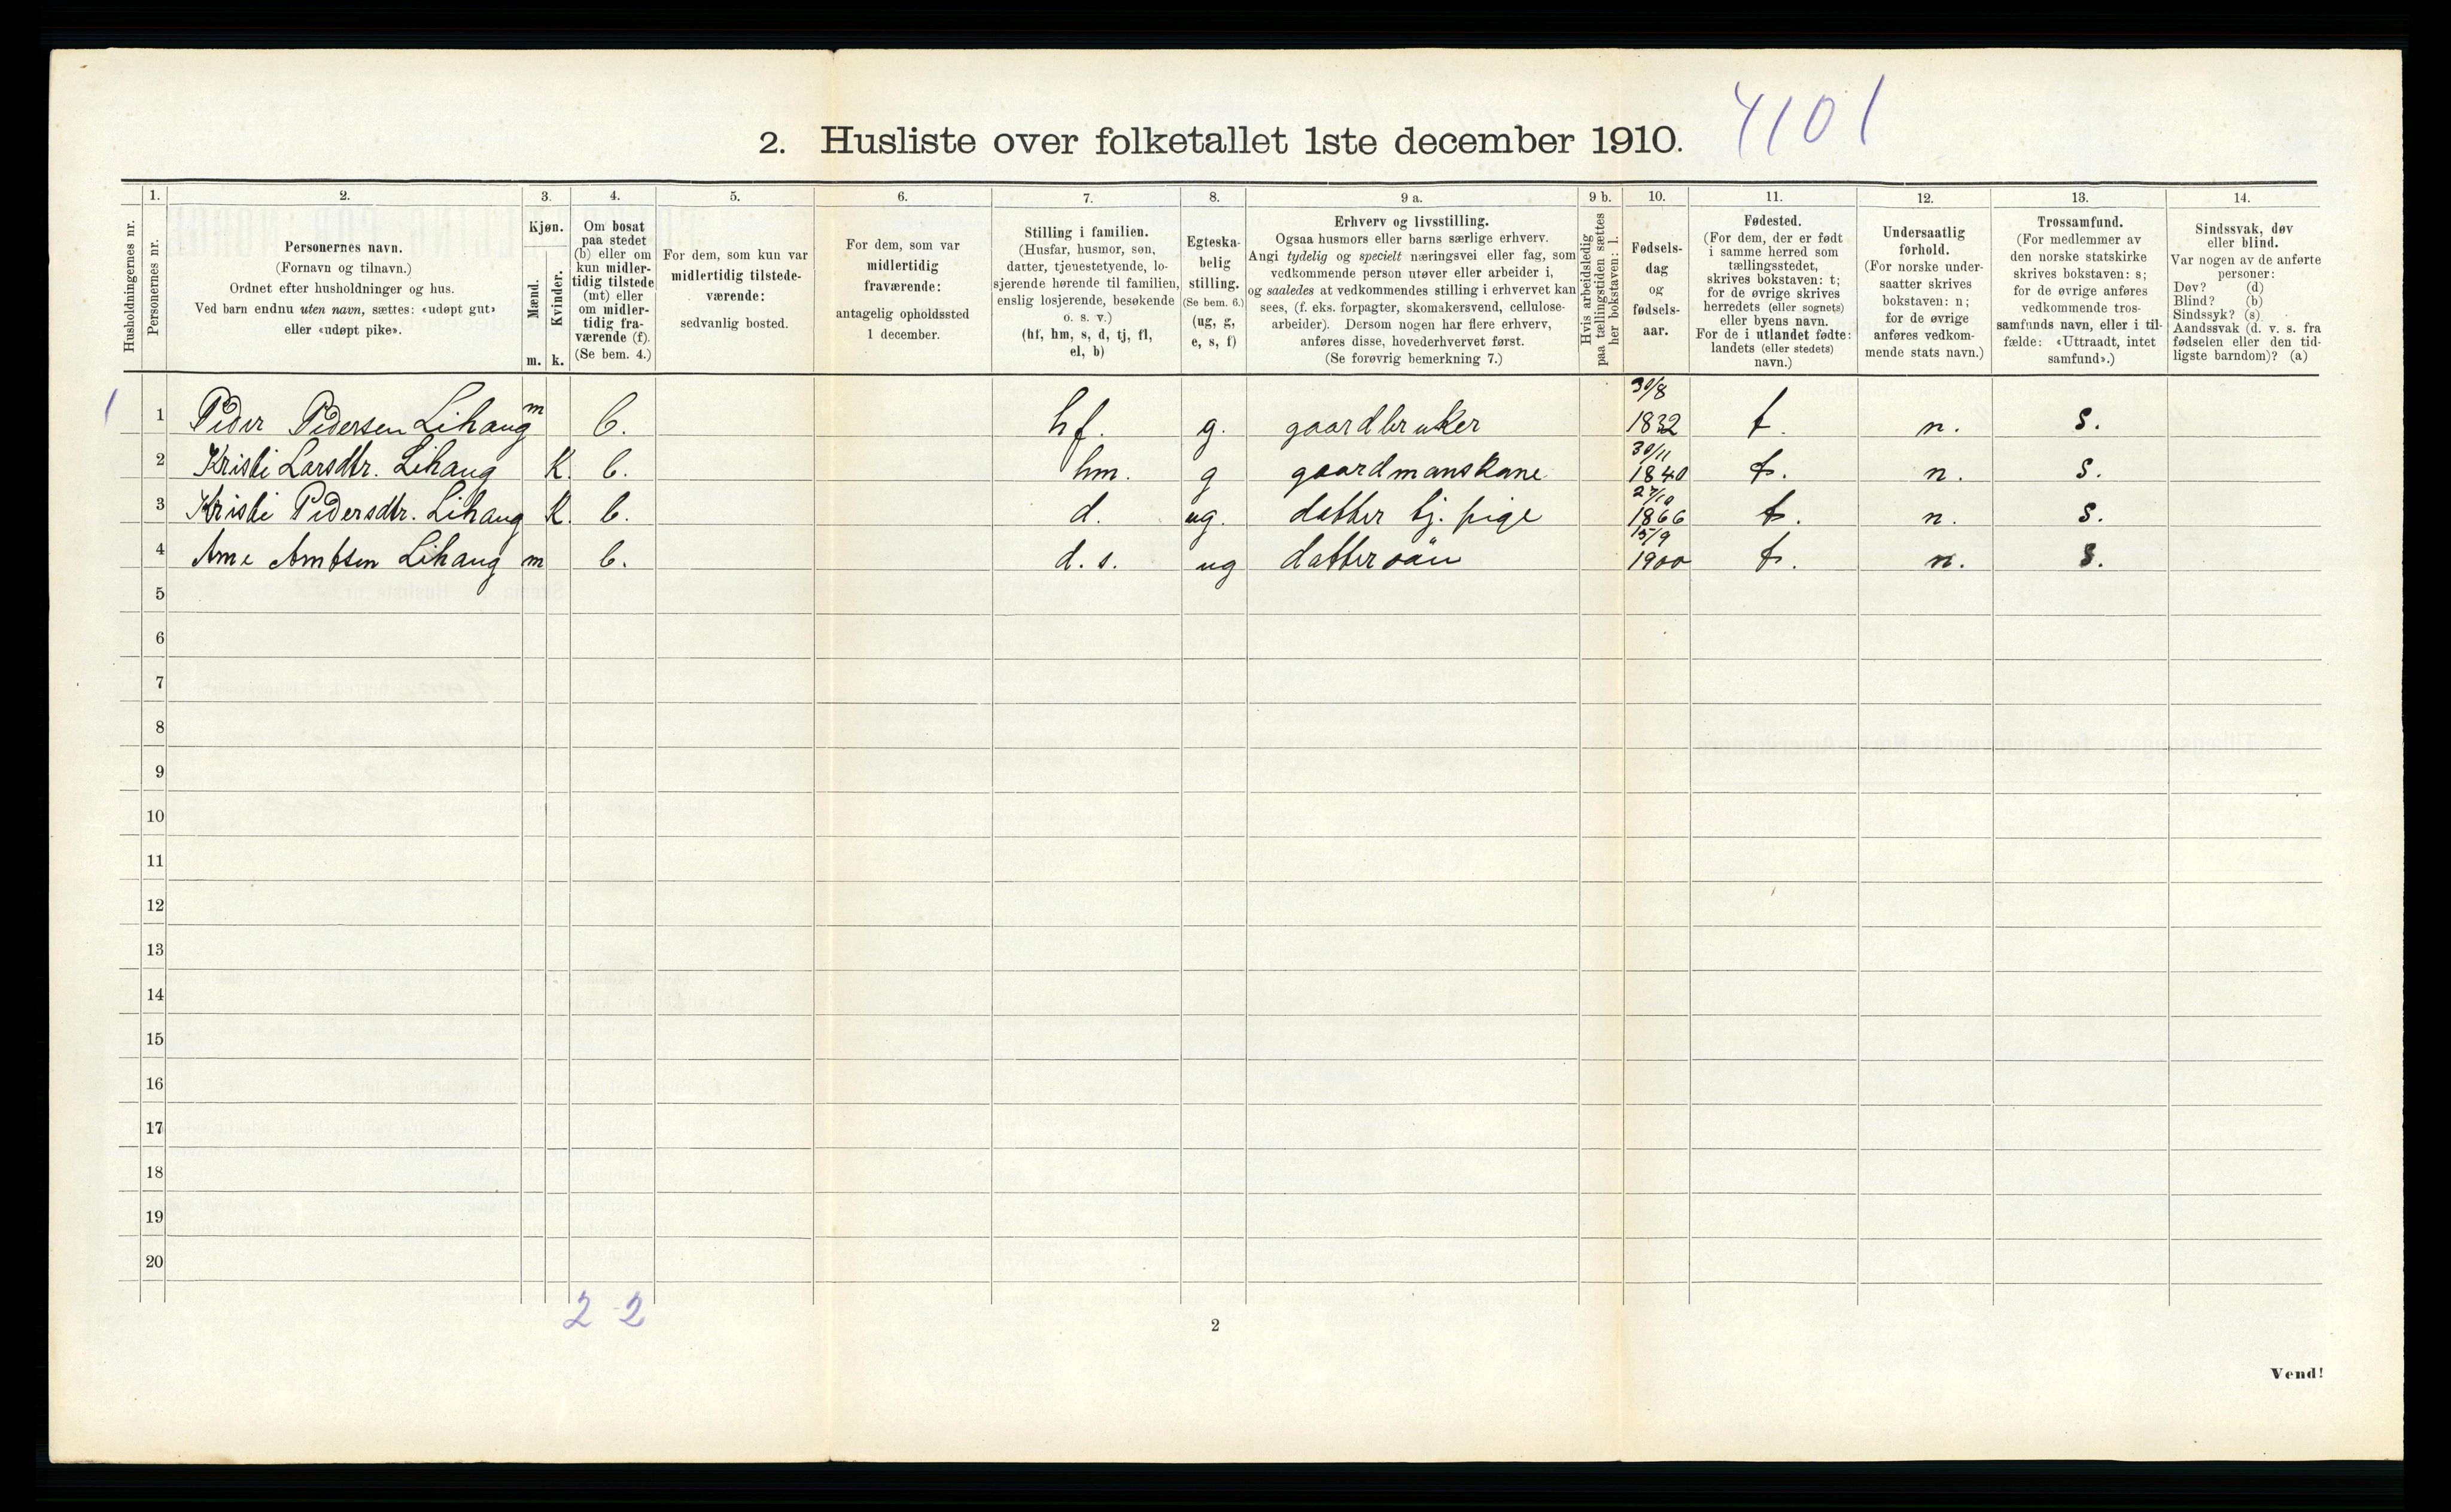 4101
2. Husliste over folketallet 1ste december 1910.
Husholdningernes nr.
1.
Personernes nr.
2.
Personernes navn.
(Fornavn og tilnavn.)
Ordnet efter husholdninger og hus.
Ved barn endnu uten navn, sættes: «udøpt gut»
eller «udøpt pike».
3.
Kjøn.
Mænd.
Kvinder.
m. k.
4.
Om bosat
paa stedet
(b) eller om
kun midler-
tidig tilstede
(mt) eller
om midler-
tidig fra-
værende (f).
(Se bem. 4.)
5.
For dem, som kun var
midlertidig tilstede-
værende:
sedvanlig bosted.
6.
For dem, som var
midlertidig
fraværende:
antagelig opholdssted
1 december.
7.
Stilling i familien.
(Husfar, husmor, søn,
datter, tjenestetyende, lo-
sjerende hørende til familien,
enslig losjerende, besøkende
o. s. v.)
(hf, hm, s, d, tj, fl,
el, b)
8.
Egteska-
belig
stilling.
(Se bem. 6.)
(ug, g,
e, s, f)
9 a.
Erhverv og livsstilling.
Ogsaa husmors eller barns særlige erhverv.
Angi tydelig og specielt næringsvei eller fag, som
vedkommende person utøver eller arbeider i,
og saaledes at vedkommendes stilling i erhvervet kan
sees, (f. eks. forpagter, skomakersvend, cellulose-
arbeider). Dersom nogen har flere erhverv,
anføres disse, hovederhvervet først.
(Se forøvrig bemerkning 7.)
9 b.
Hvis arbeidsledig
paa tællingstiden sættes
her bokstaven: l.
10.
Fødsels-
dag
og
fødsels-
aar.
11.
Fødested.
(For dem, der er født
i samme herred som
tællingsstedet,
skrives bokstaven: t;
for de øvrige skrives
herredets (eller sognets)
eller byens navn.
For de i utlandet fødte:
landets (eller stedets)
navn.)
12.
Undersaatlig
forhold.
(For norske under-
saatter skrives
bokstaven: n;
for de øvrige
anføres vedkom-
mende stats navn.)
13.
Trossamfund.
(For medlemmer av
den norske statskirke
skrives bokstaven: s;
for de øvrige anføres
vedkommende tros-
samfunds navn, eller i til-
fælde: «Uttraadt, intet
samfund».)
14.
Sindssvak, døv
eller blind.
Var nogen av de anførte
personer:
Døv? (d)
Blind? (b)
Sindssyk? (s)
Aandssvak (d. v. s. fra
fødselen eller den tid-
ligste barndom)? (a)
1 1 Peder Pedersen Lihaug m b. hf. g. gaardbruker 30/8 1832 t. n. s.
2 Kristi Larsdtr. Lihaug K. b. hm. g gaardmanskone 30/11 1840 t. n. s.
3 Kristi Pedersdtr. Lihaug K. b. d. ug. datter tj. pige 27/10 1866 t. n. s.
4 Arne Arntsen Lihaug m b. d. s. ug dattersön 15/9 1900 t. n. s.
5
6
7
8
9
10
11
12
13
14
15
16
17
18
19
20
2 2
2
Vend!